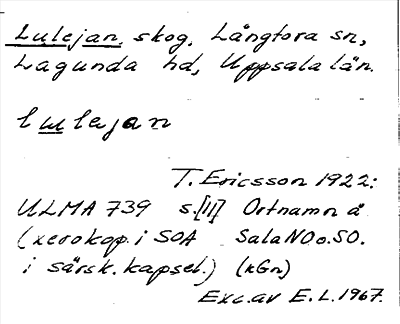 Lulejan, skog, Långtora sn,
Lagunda hd, Uppsala län.
lulejan
T. Ericsson 1922:
ULMA 739 s.[11] Ortnamn å
(xerokop. i SOA Sala NO o. SO.
i särsk. kapsel.) (kGn)
Exc. av E. L. 1967.